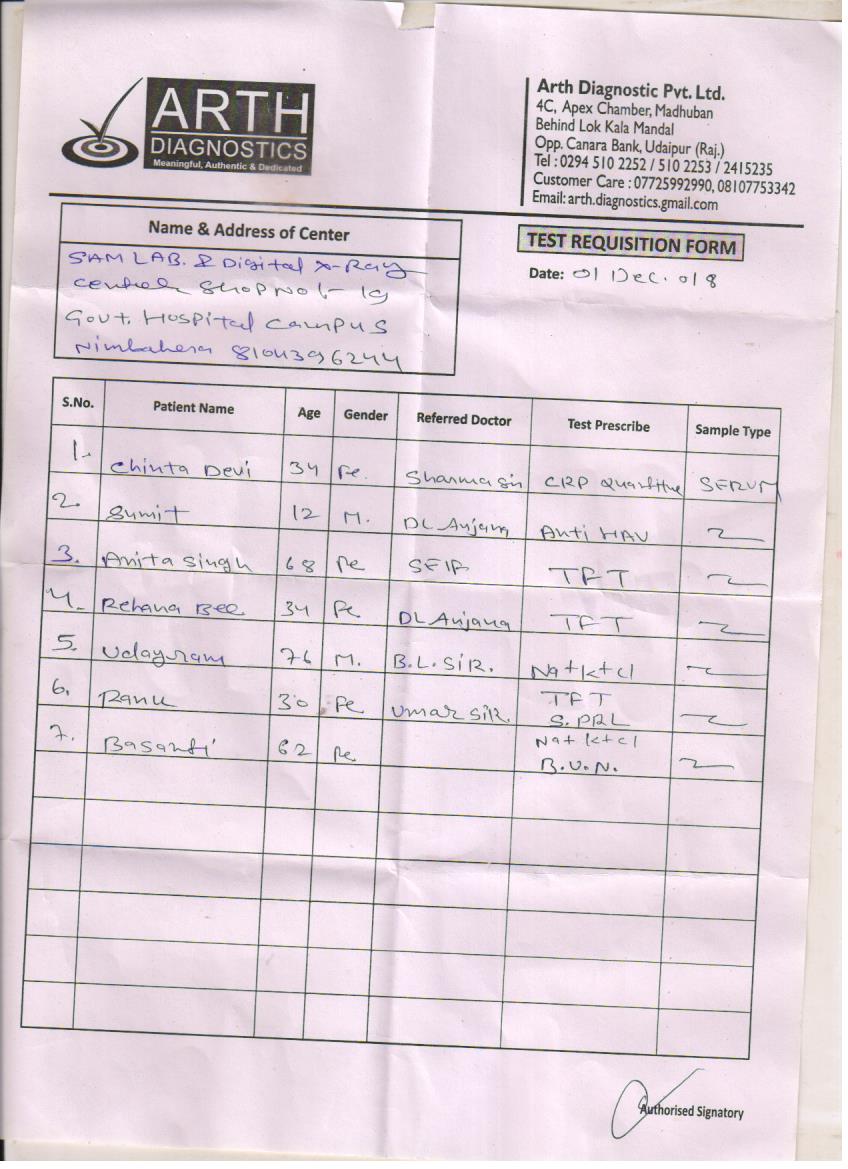 ARTH
DIAGNOSTICS
Meaningful, Authentic & Dedicated
Arth Diagnostic Pvt. Ltd.
4C, Apex Chamber, Madhuban
Behind Lok Kala Mandal
Opp. Canara Bank, Udaipur (Raj.)
Tel : 0294 510 2252 / 510 2253 / 2415235
Customer Care : 07725992990, 08107753342
Email: arth.diagnostics.gmail.com
Name & Address of Center
SAM LAB. & Digital X-Ray
Shop No 1-19
Govt. Hospital Campus
Nimbahera 8104396244
TEST REQUISITION FORM
Date: 01 Dec. 018
S.No. Patient Name Age Gender Referred Doctor Test Prescribe Sample Type
1. Chinta Devi 34 Fe. Sharma Sir CRP SERUM
2. Sumit 12 M. Dr. Anjana Anti HAV
3. Anita Singh 68 Fe SELF TFT
4. Rehana Bee 34 Fe Dr. Anjana TFT
5. Udayram 76 M. B.L. SIR. Na+k+cl
6. 30 Fe. Umar SIR. TFT
S.PRL
7. Basanti 62 Fe. Na+ k+cl
B.U.N.
Authorised Signatory